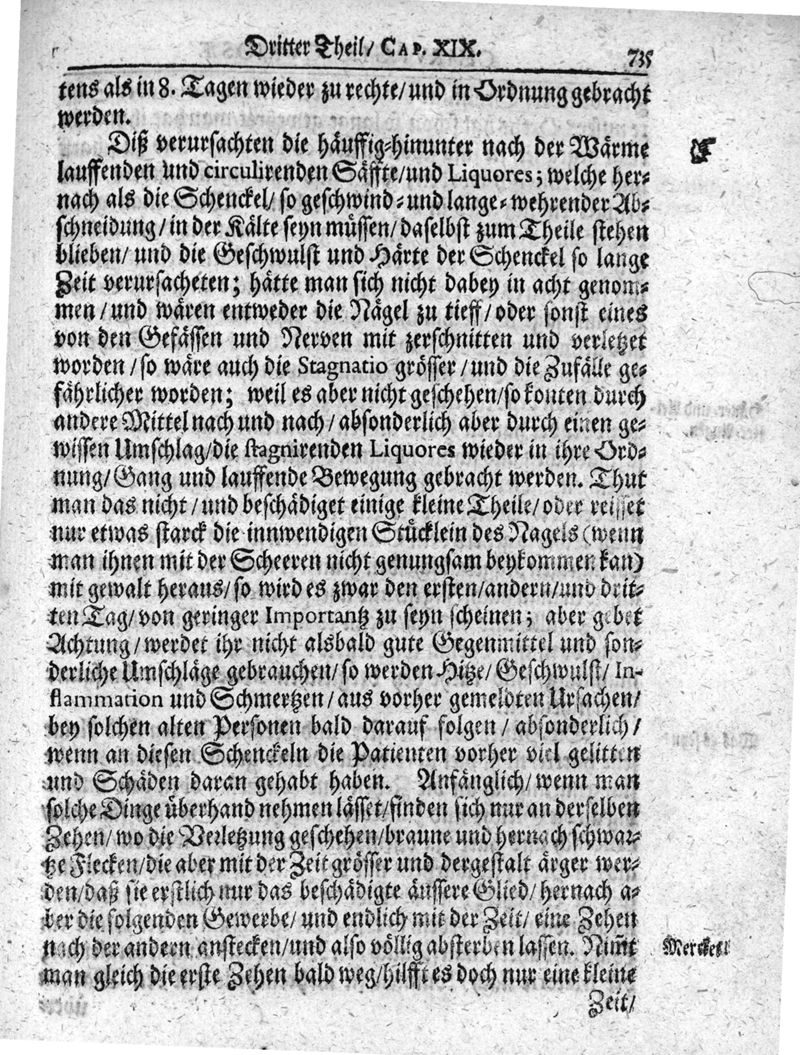 Dritter Theil/ CAP. XIX. 735
tens als in 8. Tagen wieder zu rechte/ und in Ordnung gebracht
werden.
Diß verursachten die häuffig-hinunter nach der Wärme
lauffenden und circulirenden Säffte/ und Liquores; welche her-
nach als die Schenckel/ so geschwind- und lange-wehrender Ab-
schneidung/ in der Kälte seyn müssen/ daselbst zum Theile stehen
blieben/ und die Geschwulst und Härte der Schenckel so lange
Zeit verursacheten; hätte man sich nicht dabey in acht genom-
men/ und wären entweder die Nägel zu tieff/ oder sonst eines
von den Gefässen und Nerven mit zerschnitten und verletzet
worden/ so wäre auch die Stagnatio grösser/ und die Zufälle ge-
fährlicher worden; weil es aber nicht geschehen/ so konten durch
andere Mittel nach und nach/ absonderlich aber durch einen ge-
wissen Umschlag/ die stagnirenden Liquores wieder in ihre Ord-
nung/ Gang und lauffende Bewegung gebracht werden. Thut
man das nicht/ und beschädiget einige kleine Theile/ oder reisset
nur etwas starck die innwendigen Stücklein des Nagels (wenn
man ihnen mit der Scheeren nicht genungsam beykommen kan)
mit gewalt heraus/ so wird es zwar den ersten/ andern/ und drit-
ten Tag/ von geringer Importantz zu seyn scheinen; aber gebet
Achtung/ werdet ihr nicht alsbald gute Gegenmittel und son-
derliche Umschläge gebrauchen/ so werden Hitze/ Geschwulst/ In-
flammation und Schmertzen/ aus vorher gemeldten Ursachen/
bey solchen alten Personen bald darauf folgen/ absonderlich/
wenn an diesen Schenckeln die Patienten vorher viel gelitten
und Schäden daran gehabt haben. Anfänglich/ wenn man
solche Dinge überhand nehmen lässet/ finden sich nur an derselben
Zehen/ wo die Verletzung geschehen/ braune und hernach schwar-
tze Flecken/ die aber mit der Zeit grösser und dergestalt ärger wer-
den/ daß sie erstlich nur das beschädigte äussere Glied/ hernach a-
ber die folgenden Gewerbe/ und endlich mit der Zeit/ eine Zehen
nach der andern anstecken/ und also völlig absterben lassen. Nim̃t
Mercket!
man gleich die erste Zehen bald weg/ hilfft es doch nur eine kleine
Zeit/